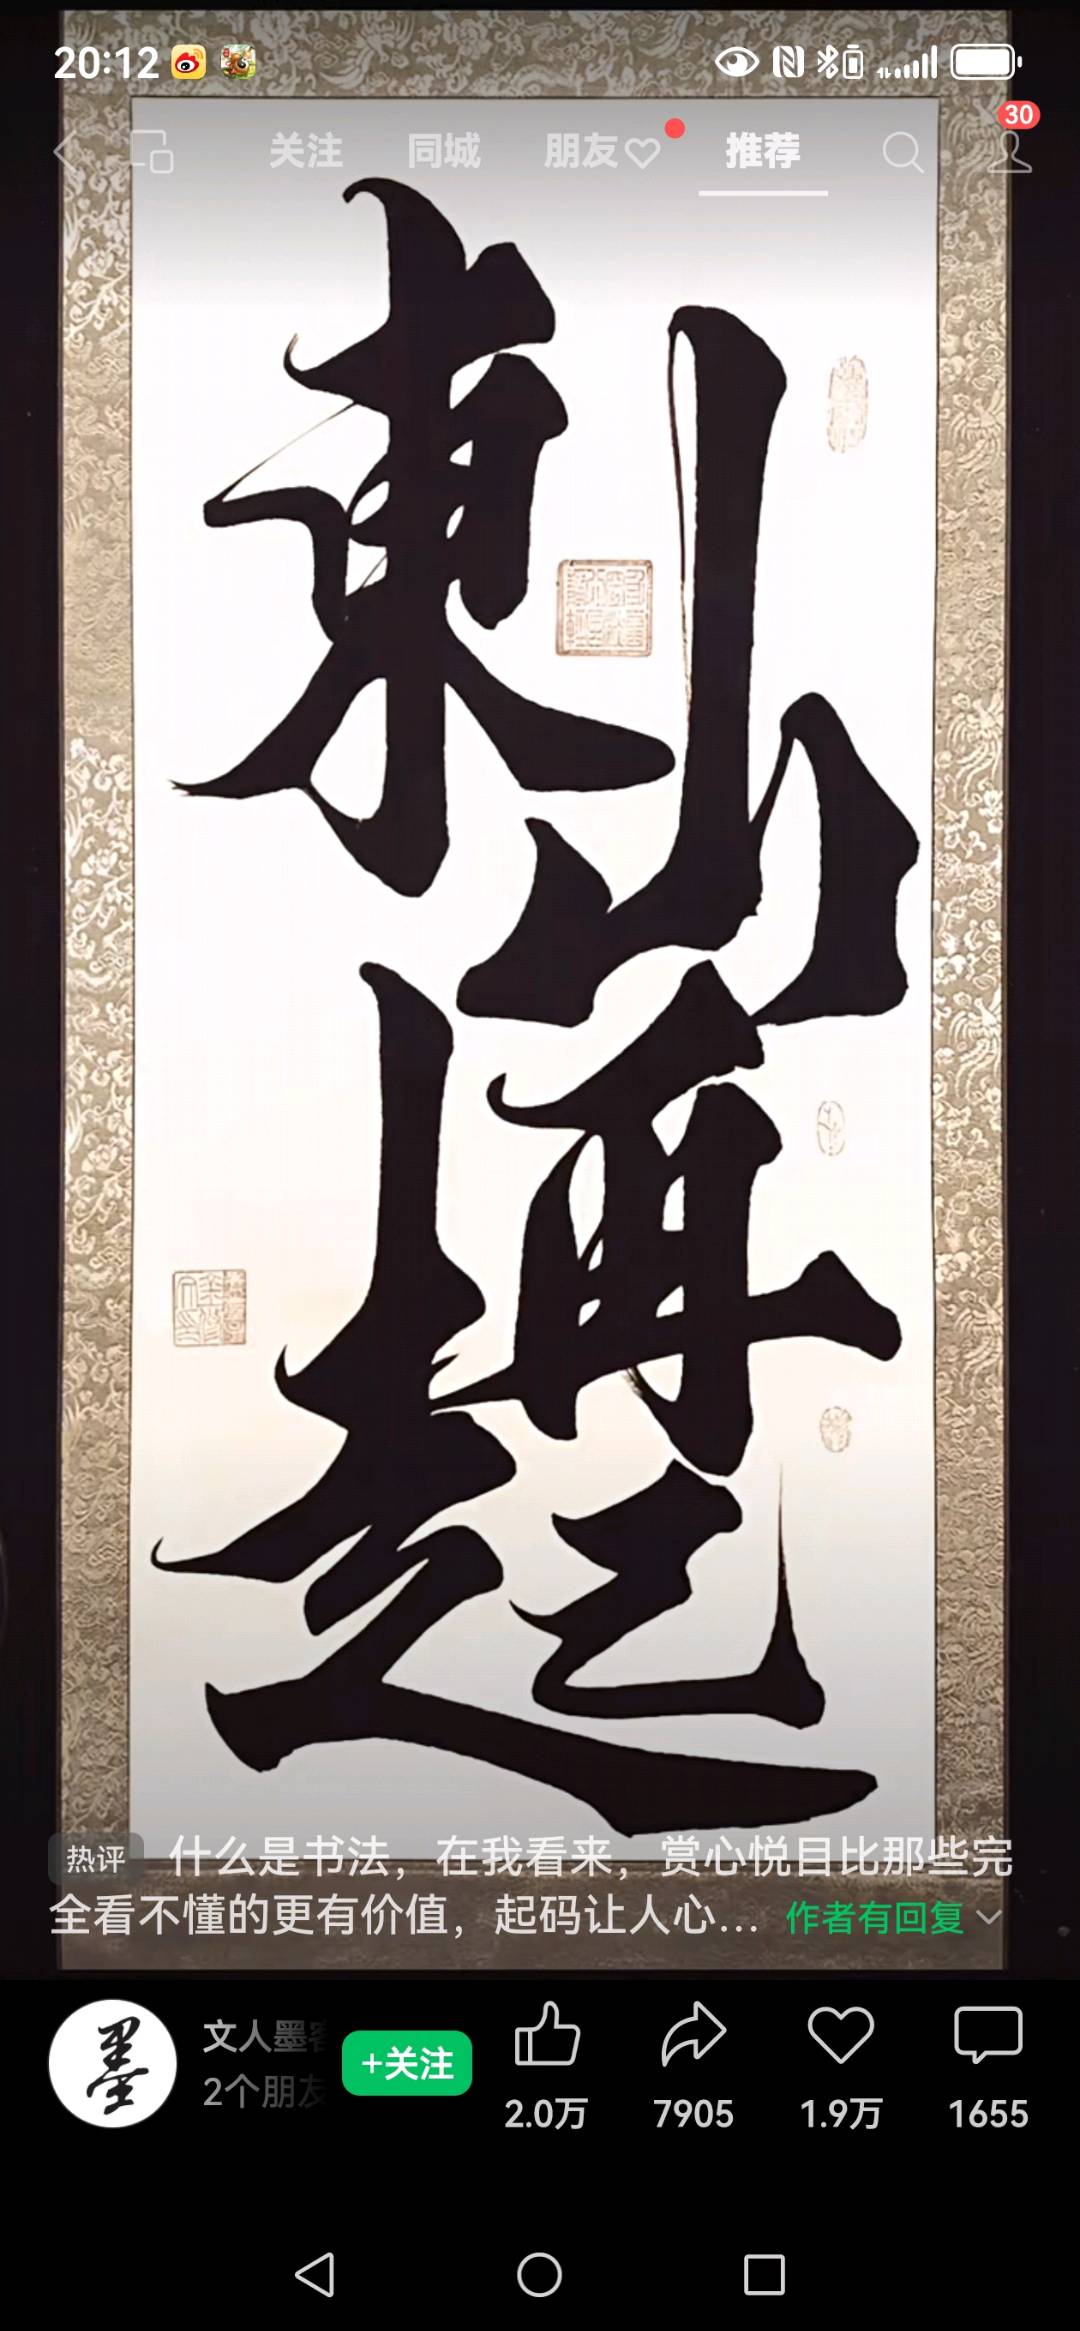 20:12
关注 同城 朋友 推荐
30
東山再起
热评 什么是书法，在我看来，赏心悦目比那些完
全看不懂的更有价值，起码让人心... 作者有回复
墨
文人墨客
2个朋友
+关注
2.0万 7905 1.9万 1655